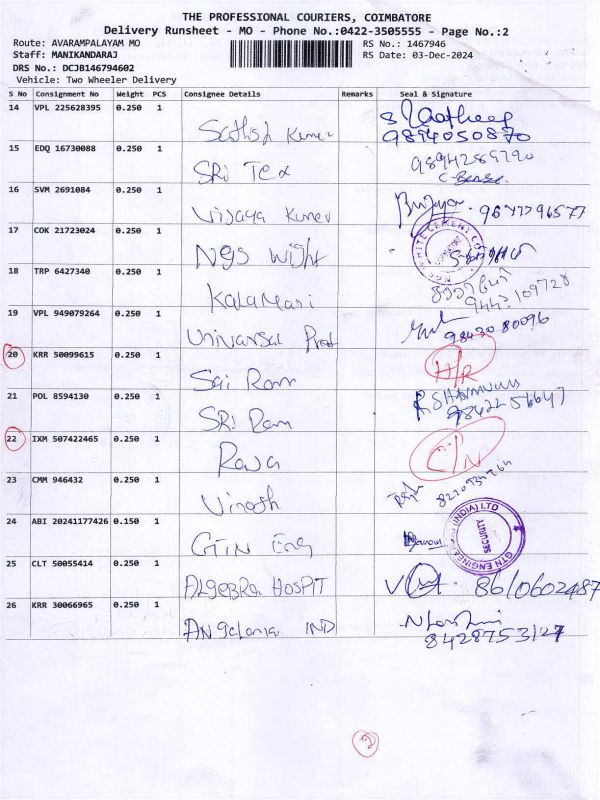 THE PROFESSIONAL COURIERS, COIMBATORE
Delivery Runsheet - MO - Phone No.:0422-3505555 - Page No.:2
Route: AVARAMPALAYAM MO RS No.: 1467946
Staff: MANIKANDARAJ RS Date: 03-Dec-2024
DRS No.: DCJB146794602
Vehicle: Two Wheeler Delivery
S No Consignment No Weight PCS Consignee Details Remarks Seal & Signature
14 VPL 225628395 0.250 1
Sathish Kumar 9894050870
15 EDQ 16730088 0.250 1
SRi Tex
16 SVM 2691084 0.250 1
Vijaya Kumar
17 COK 21723024 0.250 1
NGS Wight
18 TRP 6427340 0.250 1
Kalamari 9443109728
19 VPL 949079264 0.250 1
Univarsal Prof 9843080096
20 KRR 50099615 0.250 1
Sai Ram
21 POL 8594130 0.250 1
SRi Ram
22 IXM 507422465 0.250 1
Rava
23 CMM 946432 0.250 1
24 ABI 20241177426 0.150 1
GTN Eng
SECURITY
25 CLT 50055414 0.250 1
ALgeBRA HOSPIT 8610602487
26 KRR 30066965 0.250 1
ANgalama IND 8428753127
2